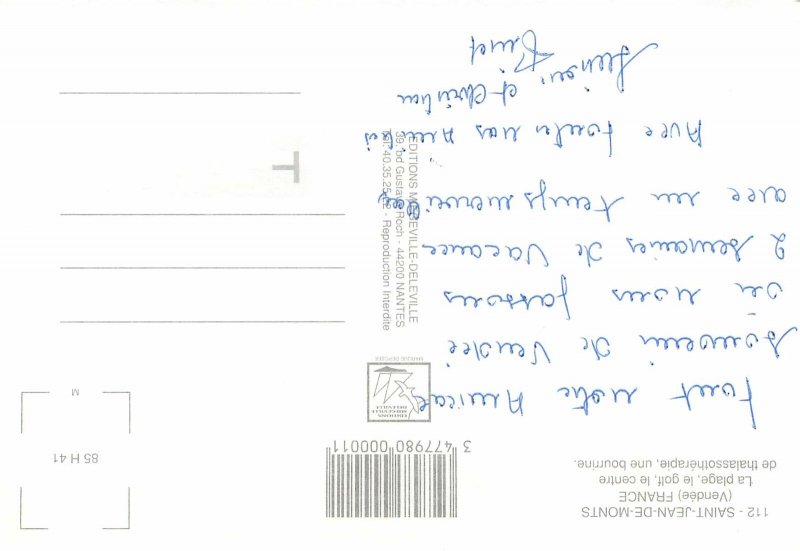 112 - SAINT-JEAN-DE-MONTS
(Vendée) FRANCE
La plage, le golf, le centre
de thalassothérapie, une bourrine.
Tout notre Amical
Souvenir de Vendée
ou nous passons
2 semaines de Vacance
avec un temps merveilleux
Avec toutes nos Amitiés
et Christian
3 477980 000011
EDITIONS
MERGEVILLE
DELEVILLE
MARQUE DEPOSEE
EDITIONS MERGEVILLE-DELEVILLE
39, bd Gustave Roch - 44200 NANTES
Tél. 40.35.25.22 - Reproduction Interdite
T
85 H 41
M